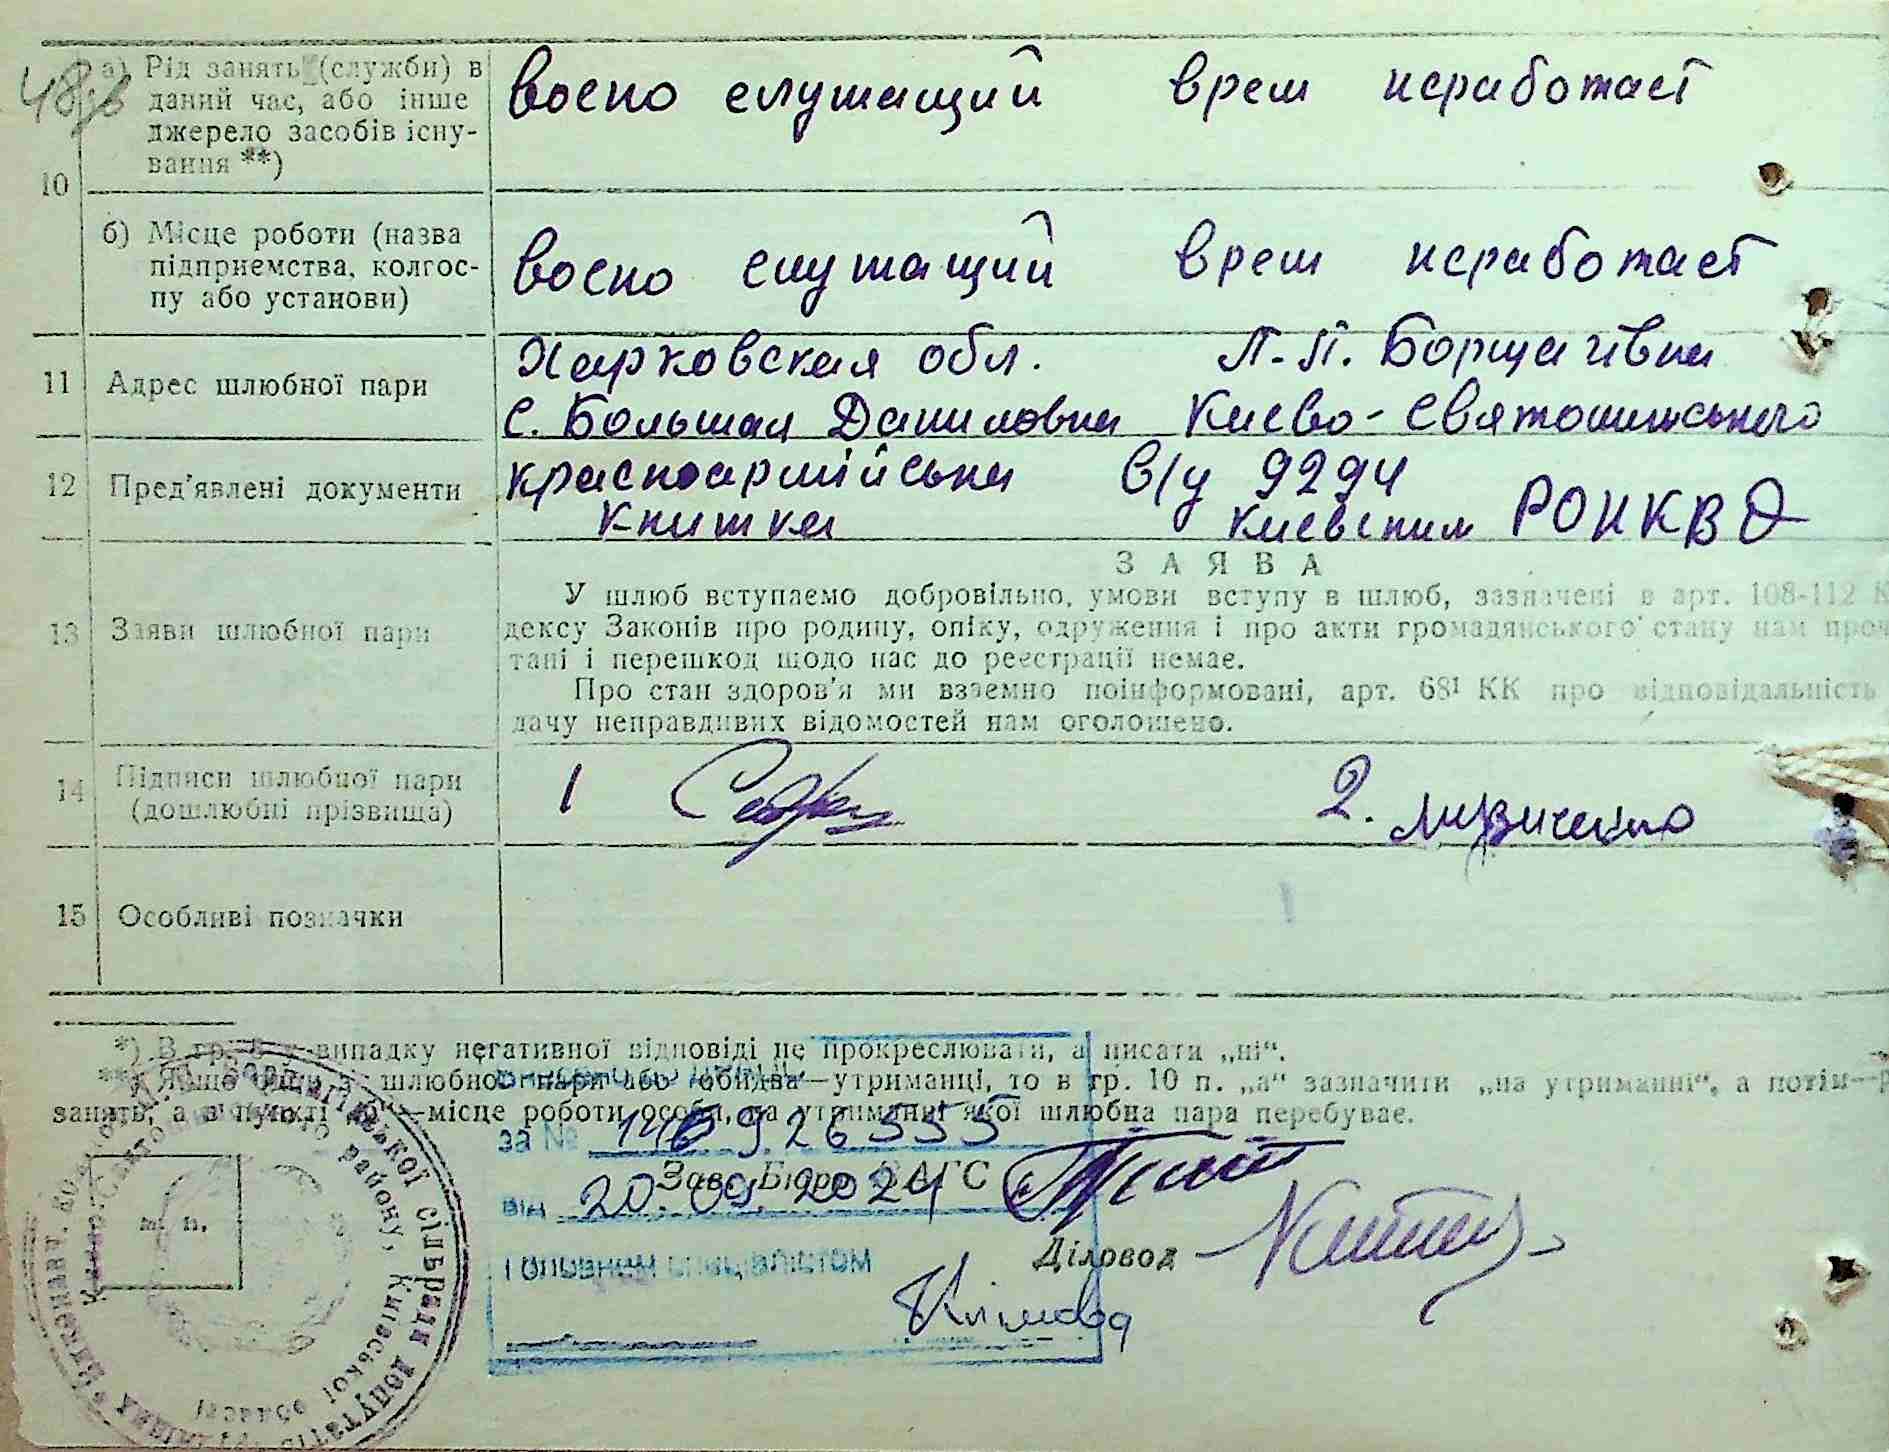 10
а) Рід занять (служби) в
даний час, або інше
джерело засобів існу-
вання **)
воено служащий врем неработает
б) Місце роботи (назва
підприємства, колгос-
пу або установи)
воено служащий врем неработает
11 Адрес шлюбної пари
Харковская обл. П.-П. Борщагівка
с. Большая Даниловка Києво-Святошинського
12 Пред'явлені документи
красноармійська в/у 9294
книжка Киевским РОНКВД
13 Заяви шлюбної пари
ЗАЯВА
У шлюб вступаємо добровільно, умови вступу в шлюб, зазначені в арт. 108-112 К
дексу Законів про родину, опіку, одруження і про акти громадянського стану нам проч
тані і перешкод щодо нас до реєстрації немає.
Про стан здоров'я ми взаємно поінформовані, арт. 68¹ КК про відповідальність
дачу неправдивих відомостей нам оголошено.
14 Підписи шлюбної пари
(дошлюбні прізвища)
1 2.
15 Особливі позначки
*) В гр. в випадку негативної відповіді не прокреслювати, а писати „ні“.
**) Якщо один з шлюбної пари або обидва—утриманці, то в гр. 10 п. „а“ зазначити „на утриманні“, а потім—р
занять, а в пункті „б“—місце роботи особи, на утриманні якої шлюбна пара перебуває.
за №
Зав. Бюро ЗАГС
від 20.09.2024
Діловод
головним спеціалістом
Клімова
м. п.
сільради депутатів
району, Київської області